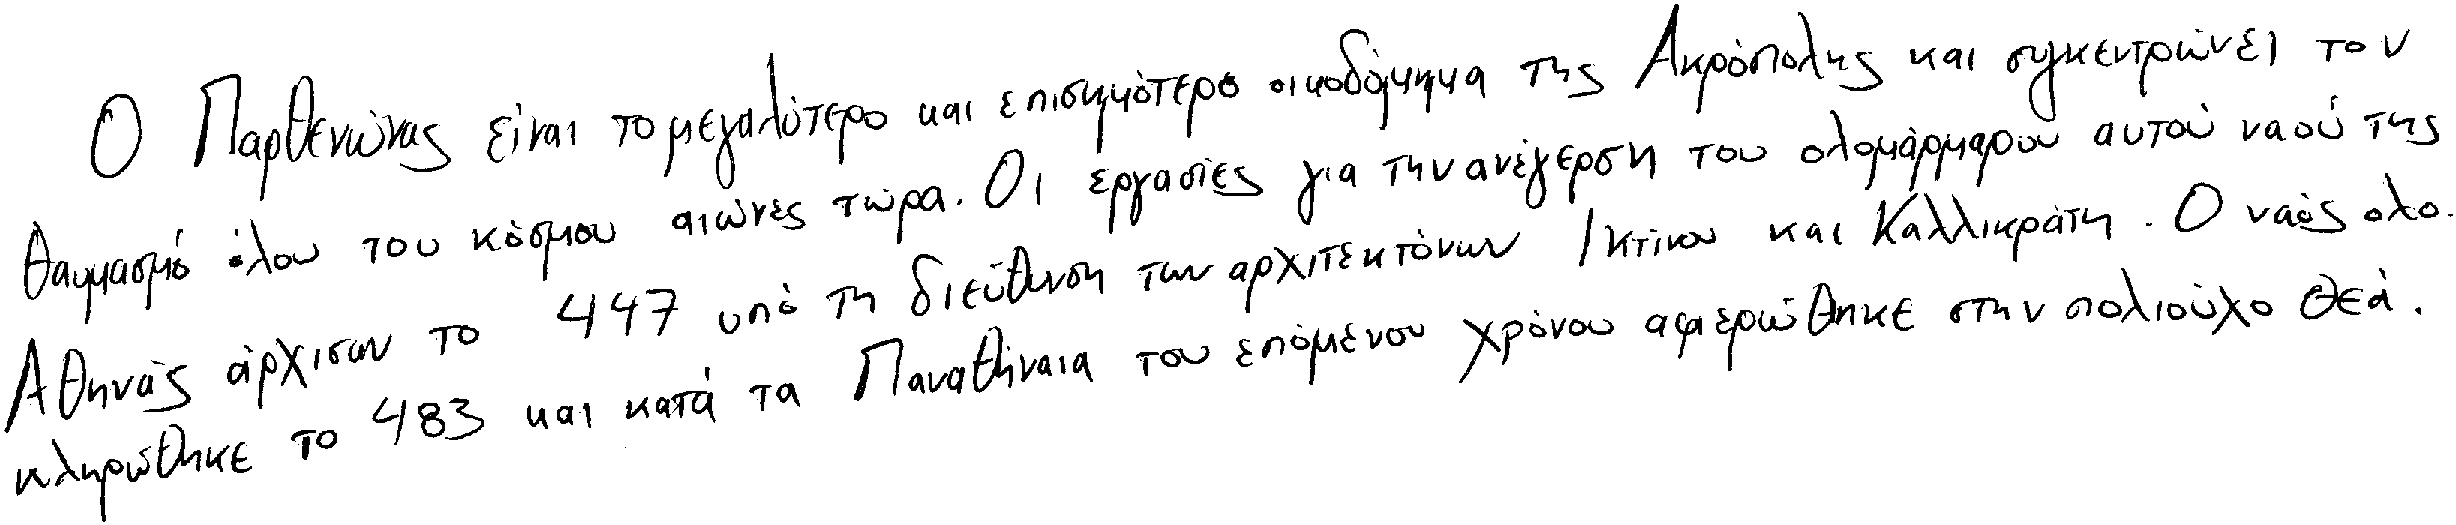 Ο Παρθενώνας είναι το μεγαλύτερο και επισημότερο οικοδόμημα της Ακρόπολης και συγκεντρώνει τον
θαυμασμό όλου του κόσμου αιώνες τώρα. Οι εργασίες για την ανέγερση του ολομάρμαρου αυτού ναού της
Αθηνάς άρχισαν το 447 υπό τη διεύθυνση των αρχιτεκτόνων Ικτίνου και Καλλικράτη. Ο ναός ολο-
κληρώθηκε το 483 και κατά τα Παναθήναια του επόμενου χρόνου αφιερώθηκε στην πολιούχο θεά.